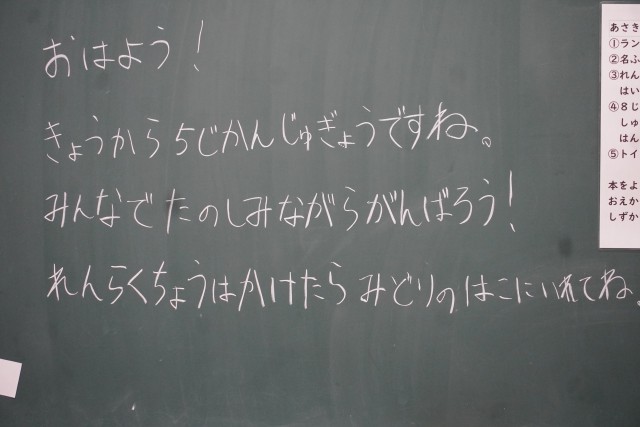 おはよう!
きょうから5じかんじゅぎょうですね。
みんなでたのしみながらがんばろう!
れんらくちょうはかけたらみどりのはこにいれてね。
あさき
①ラン
②名ふ
③れん
はい
④8じ
しゅ
はん
⑤トイ
本をよ
おえか
しずか